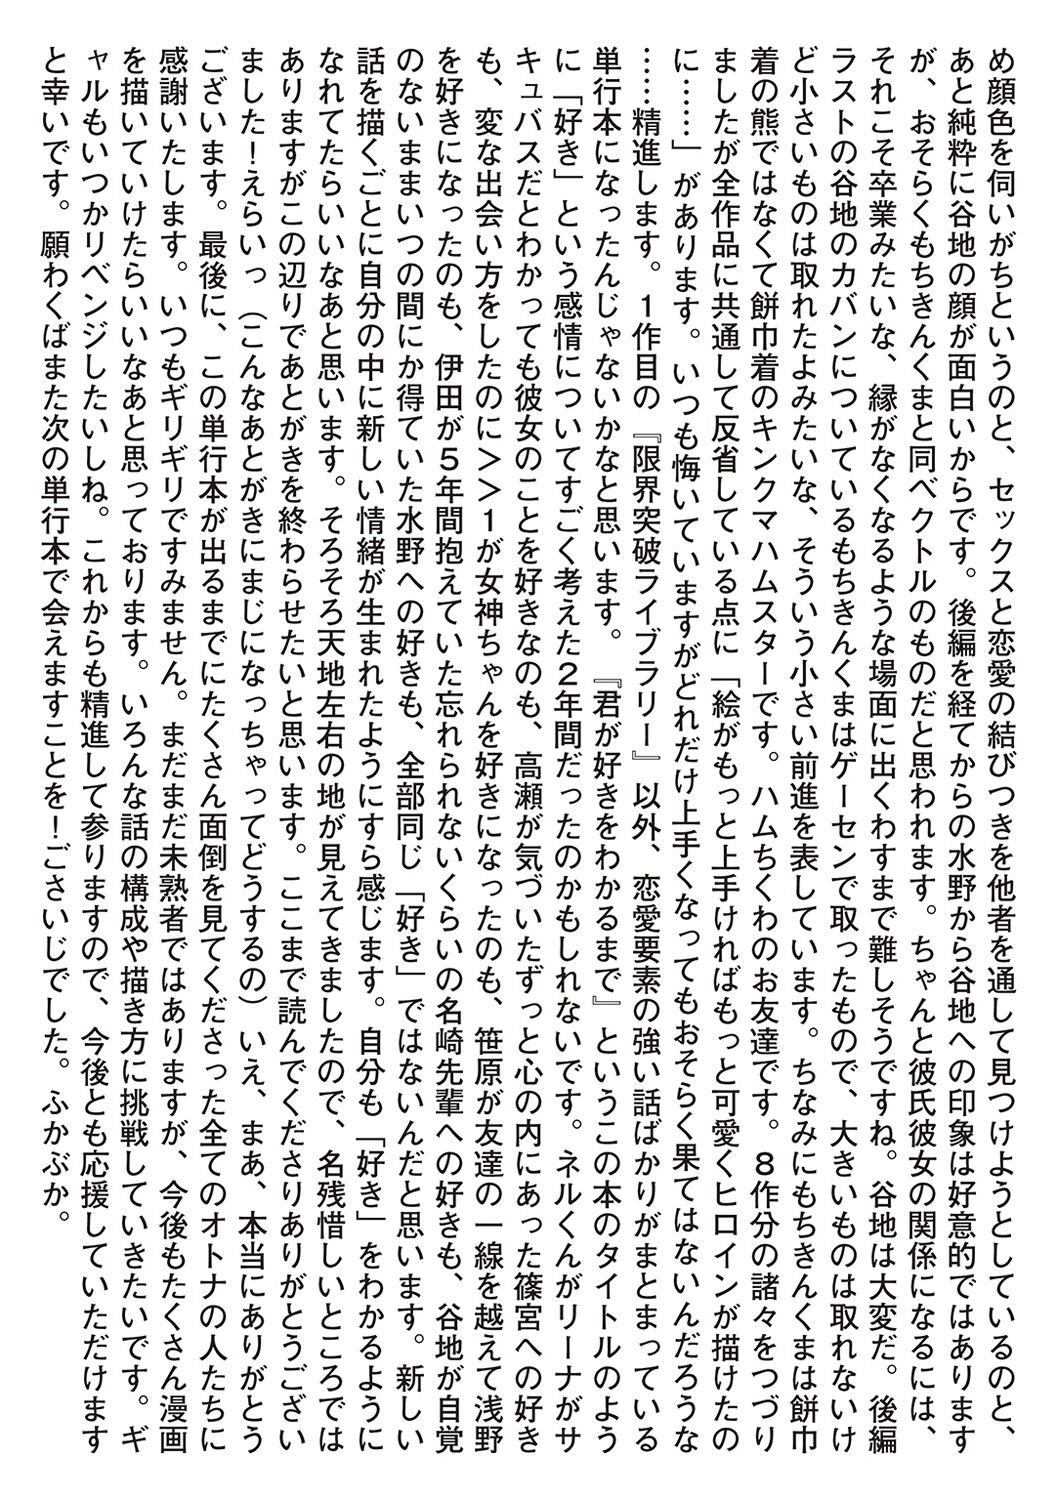 め顔色を伺いがちというのと、セックスと恋愛の結びつきを他者を通して見つけようとしているのと、
あと純粋に谷地の顔が面白いからです。後編を経てからの水野から谷地への印象は好意的ではあります
が、おそらくもちきんくまと同ベクトルのものだと思われます。ちゃんと彼氏彼女の関係になるには、
それこそ卒業みたいな、縁がなくなるような場面に出くわすまで難しそうですね。谷地は大変だ。後編
ラストの谷地のカバンについているもちきんくまはゲーセンで取ったもので、大きいものは取れないけ
ど小さいものは取れたよみたいな、そういう小さい前進を表しています。ちなみにもちきんくまは餅巾
着の熊ではなくて餅巾着のキンクマハムスターです。ハムちくわのお友達です。8作分の諸々をつづり
ましたが全作品に共通して反省している点に「絵がもっと上手ければもっと可愛くヒロインが描けたの
に……」があります。いつも悔いていますがどれだけ上手くなってもおそらく果てはないんだろうな
……精進します。1作目の『限界突破ライブラリー』以外、恋愛要素の強い話ばかりがまとまっている
単行本になったんじゃないかなと思います。『君が好きをわかるまで』というこの本のタイトルのよう
に「好き」という感情についてすごく考えた2年間だったのかもしれないです。ネルくんがリーナがサ
キュバスだとわかっても彼女のことを好きなのも、高瀬が気づいたずっと心の内にあった篠宮への好き
も、変な出会い方をしたのに＞＞1が女神ちゃんを好きになったのも、笹原が友達の一線を越えて浅野
を好きになったのも、伊田が5年間抱えていた忘れられないくらいの名崎先輩への好きも、谷地が自覚
のないままいつの間にか得ていた水野への好きも、全部同じ「好き」ではないんだと思います。新しい
話を描くごとに自分の中に新しい情緒が生まれたようにすら感じます。自分も「好き」をわかるように
なれてたらいいなあと思います。そろそろ天地左右の地が見えてきましたので、名残惜しいところでは
ありますがこの辺りであとがきを終わらせたいと思います。ここまで読んでくださりありがとうござい
ました！えらいっ（こんなあとがきにまじになっちゃってどうするの）いえ、まあ、本当にありがとう
ございます。最後に、この単行本が出るまでにたくさん面倒を見てくださった全てのオトナの人たちに
感謝いたします。いつもギリギリですみません。まだまだ未熟者ではありますが、今後もたくさん漫画
を描いていけたらいいなあと思っております。いろんな話の構成や描き方に挑戦していきたいです。ギ
ャルもいつかリベンジしたいしね。これからも精進して参りますので、今後とも応援していただけます
と幸いです。願わくばまた次の単行本で会えますことを！ごさいじでした。ふかぶか。